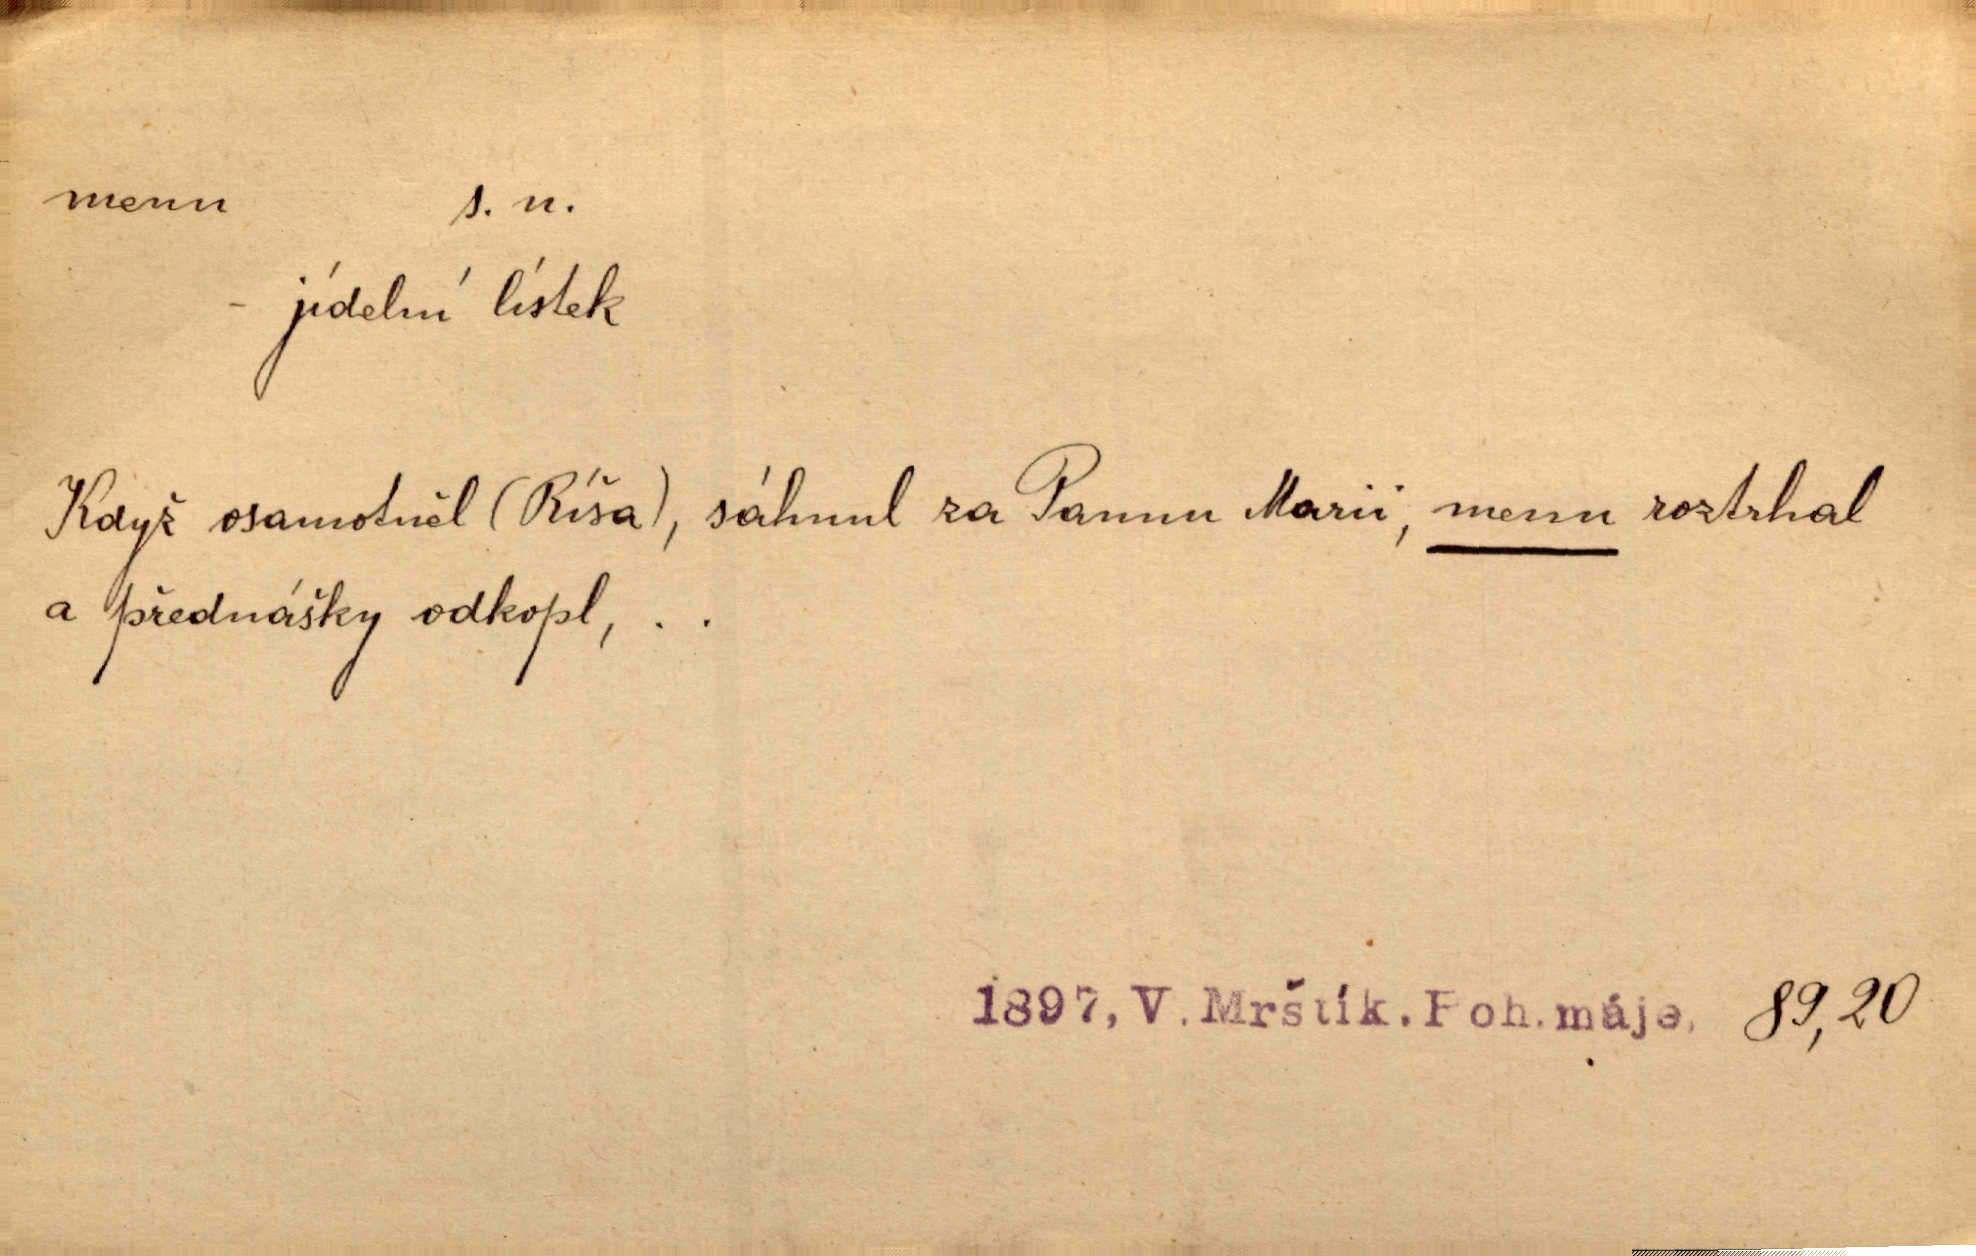 menu s. n.
- jídelní lístek
Když osamotněl (Ríša), sáhnul za Pannu Marii, menu roztrhal
a přednášky odkopl, . .
1897, V. Mrštík. Poh. máje. 89,20